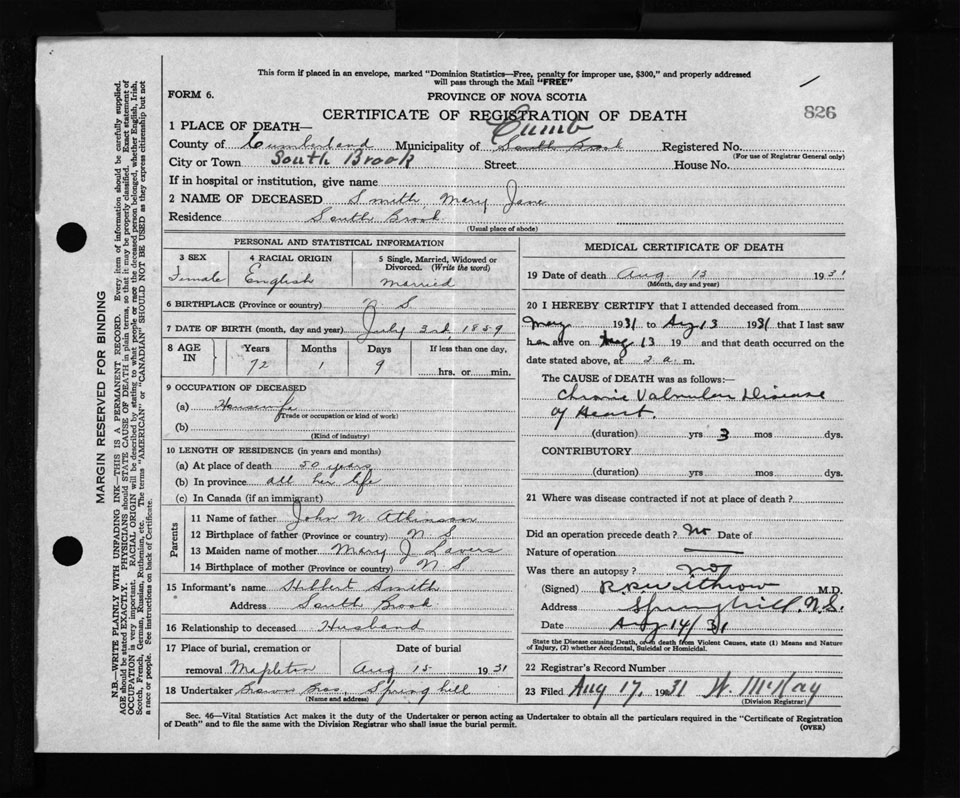 This form if placed in an envelope, marked "Dominion Statistics—Free, penalty for improper use, $300," and properly addressed
will pass through the Mail "FREE"
FORM 6.
PROVINCE OF NOVA SCOTIA
CERTIFICATE OF REGISTRATION OF DEATH
826
1 PLACE OF DEATH—
Cumb
County of Cumberland Municipality of South Brook Registered No.
(For use of Registrar General only)
City or Town South Brook Street House No.
If in hospital or institution, give name
2 NAME OF DECEASED Smith, Mary Jane
Residence South Brook
(Usual place of abode)
PERSONAL AND STATISTICAL INFORMATION
3 SEX 4 RACIAL ORIGIN 5 Single, Married, Widowed or
Divorced. (Write the word)
Female English Married
6 BIRTHPLACE (Province or country) N. S
7 DATE OF BIRTH (month, day and year) July 3rd, 1859
8 AGE IN Years Months Days If less than one day,
72 1 9 hrs. or min.
9 OCCUPATION OF DECEASED
(a) Housewife
(Trade or occupation or kind of work)
(b)
(Kind of industry)
10 LENGTH OF RESIDENCE (in years and months)
(a) At place of death 50 years
(b) In province all her life
(c) In Canada (if an immigrant)
Parents
11 Name of father John N. Atkinson
12 Birthplace of father (Province or country) N. S
13 Maiden name of mother Mary J. Lavers
14 Birthplace of mother (Province or country) N S
15 Informant's name Hibbert Smith
Address South Brook
16 Relationship to deceased Husband
17 Place of burial, cremation or Date of burial
removal Mapleton Aug 15 1931
18 Undertaker Brown Bros, Springhill
(Name and address)
MEDICAL CERTIFICATE OF DEATH
19 Date of death Aug. 13 1931
(Month, day and year)
20 I HEREBY CERTIFY that I attended deceased from
May 1931 to Aug 13 1931 that I last saw
her alive on Aug 13 19 and that death occurred on the
date stated above, at 2 a. m.
The CAUSE of DEATH was as follows:—
Chronic Valvular Disease
of Heart.
(duration) yrs 3 mos dys.
CONTRIBUTORY
(duration) yrs. mos. dys.
21 Where was disease contracted if not at place of death?
Did an operation precede death? No Date of
Nature of operation
Was there an autopsy? no
(Signed) R. R. Withrow M.D.
Address Springhill, N.S.
Date Aug 14/31
State the Disease causing Death, or, in death from Violent Causes, state (1) Means and Nature
of Injury, (2) whether Accidental, Suicidal or Homicidal.
22 Registrar's Record Number
23 Filed Aug 17, 1931 W. McKay
(Division Registrar)
Sec. 46—Vital Statistics Act makes it the duty of the Undertaker or person acting as Undertaker to obtain all the particulars required in the "Certificate of Registration
of Death" and to file the same with the Division Registrar who shall issue the burial permit.
(OVER)
MARGIN RESERVED FOR BINDING
N.B.—WRITE PLAINLY WITH UNFADING INK—THIS IS A PERMANENT RECORD. Every item of information should be carefully supplied.
AGE should be stated EXACTLY. PHYSICIANS should STATE CAUSE OF DEATH in plain terms, so that it may be properly classified. Exact statement of
OCCUPATION is very important. RACIAL ORIGIN will be described by stating to what people or race the deceased person belonged, whether English, Irish,
Scotch, French, German, Russian, Ruthenian, etc. The terms "AMERICAN" or "CANADIAN" SHOULD NOT BE USED as they express citizenship but not
a race or people. See instructions on back of Certificate.